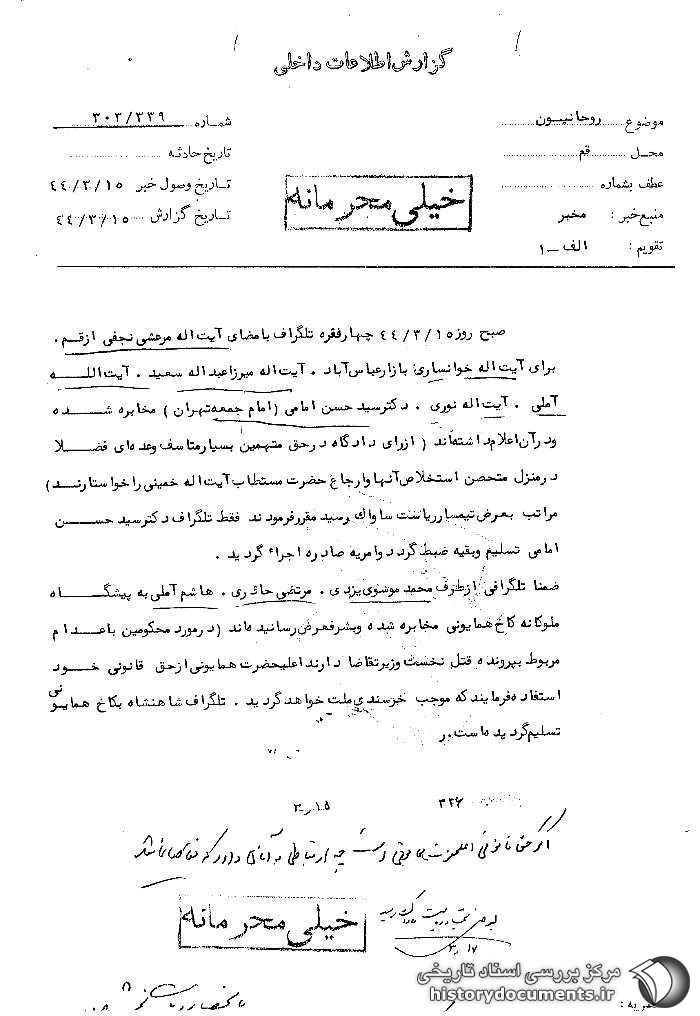 گزارش اطلاعات داخلی
موضوع روحانیون
محل قم
عطف بشماره
منبع خبر : مخبر
تقویم : الف ــ ۱
شماره ۳۰۲/۳۳۹
تاریخ حادثه
تاریخ وصول خبر ۴۴/۳/۱۵
تاریخ گزارش ۴۴/۳/۱۵
خیلی محرمانه
صبح روز ۴۴/۳/۱۵ چهار فقره تلگراف بامضای آیت اله مرعشی نجفی از قم ،
برای آیت اله خوانساری بازار عباس آباد ، آیت اله میرزا عبداله سعید ، آیت اللــه
آملی ، آیت اله نوری ، دکتر سید حسن امامی (امام جمعه تهران ) مخابره شده
و در آن اعلام داشته‌اند ( از رای دادگاه در حق متهمین بسیار متاسف وعده ای فضــلا
در منزل متحصن استخلاص آنها وارجاع حضرت مستطاب آیت اله خمینی را خواستارنــد)
مراتب بعرض تیمسار ریاست ساواک رسید مقرر فرمودند فقط تلگراف دکتر سید حســن
امامی تسلیم وبقیه ضبط گردد وامریه صادره اجراء گردید .
ضمنا تلگرافی از طرف محمد موسوی یزدی ، مرتضی حائری ، هاشم آملی به پیشگــاه
ملوکانه کاخ همایونی مخابره شده وبشرفعرض رسانیده‌اند (در مورد محکومین باعدام
مربوط بپرونده قتل نخست وزیر تقاضا دارند اعلیحضرت همایونی از حق قانونی خــود
استفاده فرمایند که موجب خرسندی ملت خواهد گردید . تلگراف شاهنشاه بکاخ همایونی
تسلیم گردیده است. ر
۳۲۶
۳٫۱۵
اگر حق قانونی اعلیحضرت همایونی است چه ارتباطی به آقای دارد که تقاضا
بعرض ریاست ساواک رسید
۳٫۱۷
خیلی محرمانه
مرکز بررسی اسناد تاریخی
historydocuments.ir